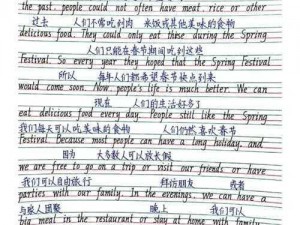 the past, people could not often have meat, rice or other
过去 人们不常吃到肉 米饭或其他美味的食物
delicious food. They could only eat these during the Spring
人们只能在春节期间吃到这些
Festival. So every year they hoped that the Spring Festival
所以 每年人们都希望春节能点到来
would come soon. Now people's life is much better. We can
现在 人们的生活好多了
eat delicious food every day. People still like the Spring
我们每天可以吃美味的食物 人们仍然喜欢春节
Festival. Because most people can have a long holiday, and
因为 大多数人可以放大假
we are free to go on a trip or visit our friends or have
我们可以自由旅行 拜访朋友 或者
party with our family. In the evenings. We can have a
与家人团聚 晚上 我们可以
big meal in the restaurant or stay at home with family